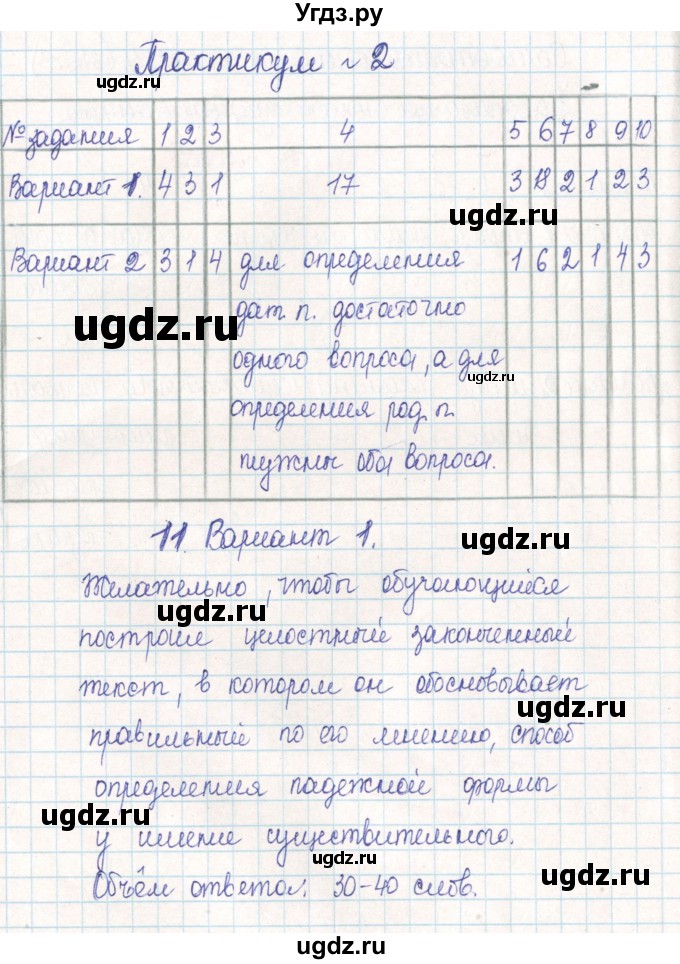 Угдз.ру
Практикум №2
№ задания 1 2 3 4 5 6 7 8 9 10
Вариант 1. 4 3 1 17 3 18 2 1 2 3
Вариант 2 3 1 4 для определения 1 6 2 1 4 3
дат. п. достаточно
одного вопроса, а для
определения род. п.
нужны оба вопроса.
11. Вариант 1.
Желательно, чтобы обучающийся
построил целостный законченный
текст, в котором он обосновывает
правильный по его мнению, способ
определения падежной формы
у имение существительного.
Объём ответа: 30-40 слов.
ugdz.ru
ugdz.ru
ugdz.ru
ugdz.ru
ugdz.ru
ugdz.ru
ugdz.ru
ugdz.ru
ugdz.ru
ugdz.ru
ugdz.ru
ugdz.ru
ugdz.ru